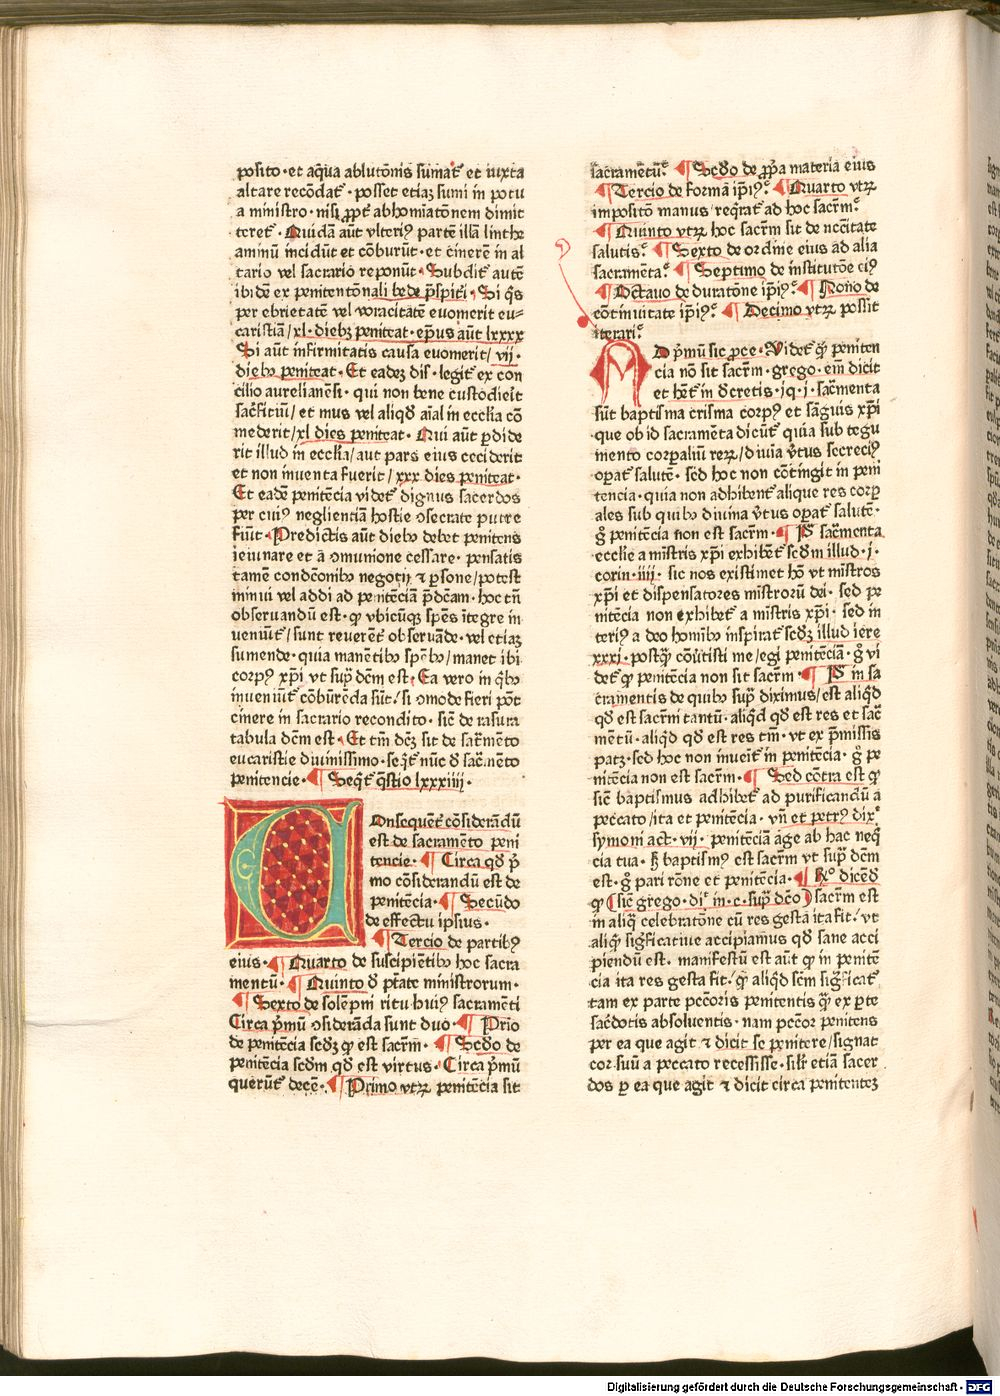 posito·et aqua ablutōnis sumat᷑ et iuxta
altare recōdat᷑·posset etiaȝ sumi in potu
a ministro·nisi ꝓpt᷑ abhomiatōnem dimit
teret᷑·Quidā aūt vlteriꝰ partē illā linthe
aminū incidūt et cōburūt·et cinerē in al
tario vel sacrario reponūt·Subdit᷑ autē
ibidē ex penitentōnali bede p̄sbit̄i·Si q̇s
per ebrietatē vel voracitatē euomerit eu⸗
caristiā/xl·diebȝ peniteat·ep̄us aūt lxxxx
Si aūt infirmitatis causa euomerit/vii·
diebꝰ peniteat·Et eadeȝ dis·legit᷑ ex con
cilio aurelianēsi·qui non bene custodieit
sac̄ficiū/et mus vel aliqd̄ aīal in ecclīa cō
mederit/xl dies peniteat·Qui aūt ꝑdide
rit illud in ecclīa/aut pars eius ceciderit
et non inuenta fuerit/xxx dies peniteat·
Et eadē penitēcia videt᷑ dignus sacerdos
per cuiꝰ neglientiā hostie ꝯsecrate putre
fiūt·Predictis aūt diebꝰ debet penitens
ieiunare et a ꝯmunione cessare·pensatis
tamē condc̄onibꝰ negotij ⁊ ꝑsone/potest
minui vel addi ad penitēciā p̄dc̄am·hoc tn̄
obseruandū est·ꝙ vbicūqȝ sp̄es ītegre in
ueniūt᷑/sunt reuerēt᷑ obseruāde·vel etiaȝ
sumende·quia manētibꝰ sp̄ebꝰ/manet ibi
corpꝰ xp̄i vt sup̄ dc̄m est·Ea vero in q̇bꝰ
inueniūt᷑ cōburēda sūt·/si ꝯmode fieri pōt
cinere in sacrario recondito·sic̄ de rasura
tabula dc̄m est·Et tm̄ dc̄ȝ sit de sac̄mēto
eucaristie diuinissimo·seqt᷑ nūc d̄ sac̄mēto
penitencie·¶ Seqt᷑ q̄stio lxxxiiii·
COnsequēt᷑ cōsiderādū
est de sacramēto peni
tencie·¶ Circa qd̄ p̄
mo cōsiderandū est de
penitēcia·¶ Secūdo
de effectu ipsius·
¶ Tercio de partibꝰ
eius·¶ Quarto de suscipiētibꝰ hoc sacra
mentū·¶ Quinto d̄ ptāte ministrorum·
¶ Sexto de solēpni ritu huiꝰ sacramēti
Circa p̄mū ꝯsiderāda sunt duo·¶ Prīo
de penitēcia scd̄ȝ ꝙ est sacr̄m·¶ Scd̄o de
penitēcia scd̄m qd̄ est virtus·Circa p̄mū
querūt᷑ decē·¶ Primo vtꝝ penitēcia sit
sacramētū?·¶ Scd̄o de ꝓp̄a materia eius
¶ Tercio de formā ip̄iꝰ?·¶ Quarto vtꝝ
impositō manus reqrat᷑ ad hoc sacr̄m?
¶ Quinto vtꝝ hoc sacr̄m sit de nccītate
salutis?·¶ Sexto de ordīne eius ad alia
sacramēta?·¶ Septimo de institutōe eiꝰ
¶ Octauo de duratōne ip̄iꝰ?·¶ Nono de
cōtinuitate ip̄iꝰ?·¶ Decimo vtꝝ possit
iterari?
AD p̄mū sic ꝓce·Videt᷑ ꝙ peniten
cia nō sit sacr̄m·grego·em̄ dicit
et het᷑ in dc̄retis·i·q·i·sac̄menta
sūt baptisma crisma corpꝰ et sāguis xp̄i
que ob id sacramēta dicūt᷑ quia sub tegu
mento corꝑaliū reꝝ/diuīa v̄tus secreciꝰ
oꝑat᷑ salutē·sed hoc non cōtingit in peni
tencia·quia non adhibent᷑ alique res corꝑ
ales sub quibꝰ diuina v̄tus oꝑat᷑ salutē·
g̊ penitēcia non est sacr̄m·¶ Pͥ sac̄menta
ecclie a mīstris xp̄i exhibēt᷑ scd̄m illud·i·
corin·iiii·sic nos existimet hō vt mīstros
xp̄i et dispensatores mīstrorū dei·sed pe
nitēcia non exhibet᷑ a mīstris xp̄i·sed in
teriꝰ a deo homībꝰ inspirat᷑ scd̄ȝ illud iere
xxxi·postꝙ cōu̇tisti me/egi penitēciā·g̊ vi
det᷑ ꝙ penitēcia non sit sacr̄m·¶ Pͥ in sa
cramentis de quibꝰ sup̄ diximus/est aliqd̄
qd̄ est sacr̄m tantū·aliqd̄ qd̄ est res et sac̄
mētū·aliqd̄ qd̄ est res tm̄·vt ex p̄missis
patȝ·sed hoc non inueīt᷑ in penitēcia·g̊ pe
nitēcia non est sacr̄m·¶ Sed cōtra est ꝙ
sic̄ baptismus adhibet᷑ ad purificandū a
peccato/ita et penitēcia·vn̄ et petrꝰ dix͛
symoni act·vii·penitēciā age ab hac neq̇
cia tua·sꝫ baptismꝰ est sacr̄m vt sup̄ dc̄m
est·g̊ pari rōne et penitēcia·¶ Rͦ dicēd̄
ꝙ (sic̄ grego·dī·in·c·sup̄ dc̄o) sacr̄m est
in aliq̄ celebratōne cū res gesta ita fit/vt
aliq̄ sig̅ficatiue accipiamus qd̄ sane acci
piendū est·manifestū est aūt ꝙ in penitē
cia ita res gesta fit/ꝙ aliqd̄ sc̄m sig̅ficat᷑
tam ex parte pcc̄oris penitentis ꝙ ex ꝑte
sac̄dotis absoluentis·nam pcc̄or penitens
per ea que agit ⁊ dicit se penitere/signat
cor suū a peccato recessisse·silr̄ etiā sacer
dos ꝑ ea que agit ⁊ dicit circa penitenteȝ
Digitalisierung gefördert durch die Deutsche Forschungsgemeinschaft - DFG